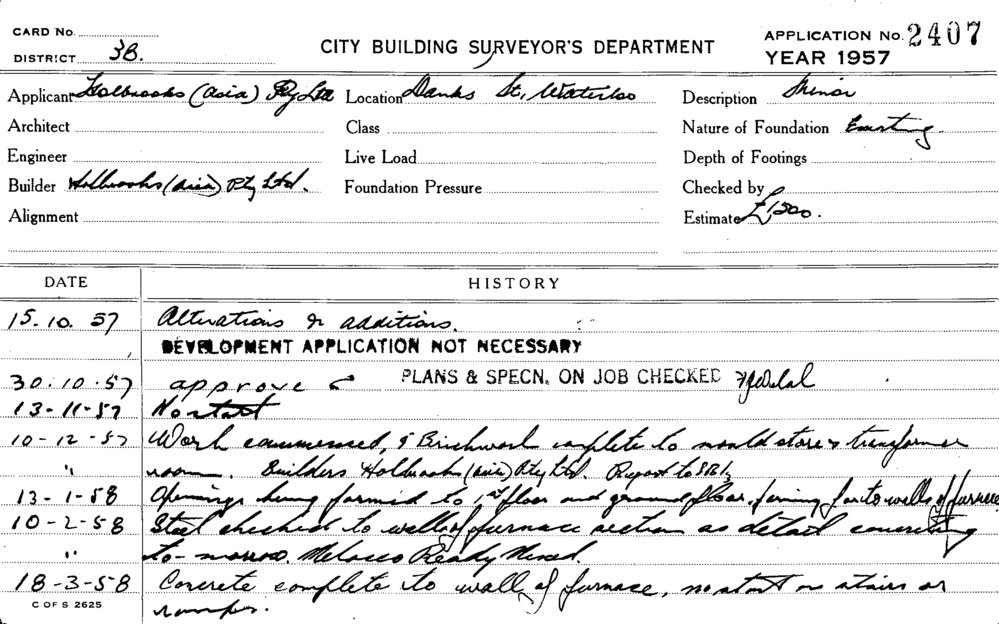 CARD No.
DISTRICT 3B.
CITY BUILDING SURVEYOR'S DEPARTMENT
APPLICATION No. 2407
YEAR 1957
Applicant Holbrooks (Asia) Pty Ltd
Location Danks St, Waterloo
Description Minor
Architect
Class
Nature of Foundation Existing.
Engineer
Live Load
Depth of Footings
Builder Holbrooks (Asia) Pty Ltd.
Foundation Pressure
Checked by
Alignment
Estimate £1500.
DATE HISTORY
15.10.57 Alterations & additions.
DEVELOPMENT APPLICATION NOT NECESSARY
30.10.57 approve
PLANS & SPECN. ON JOB CHECKED
13-11-57 No start
10-12-57 Work commenced, & Brickwork complete to mould store & transformer
" room. Builders Holbrooks (Asia) Pty Ltd. Report to
13-1-58 Openings being formed to 1st floor and ground floor, forming for to walls of furnace
10-2-58 Steel checked to walls of furnace section as detail concreting
" to-morrow. Melocco Ready Mixed.
18-3-58 Concrete complete to wall of furnace, no start on stairs or
ramps.
C OF S 2625